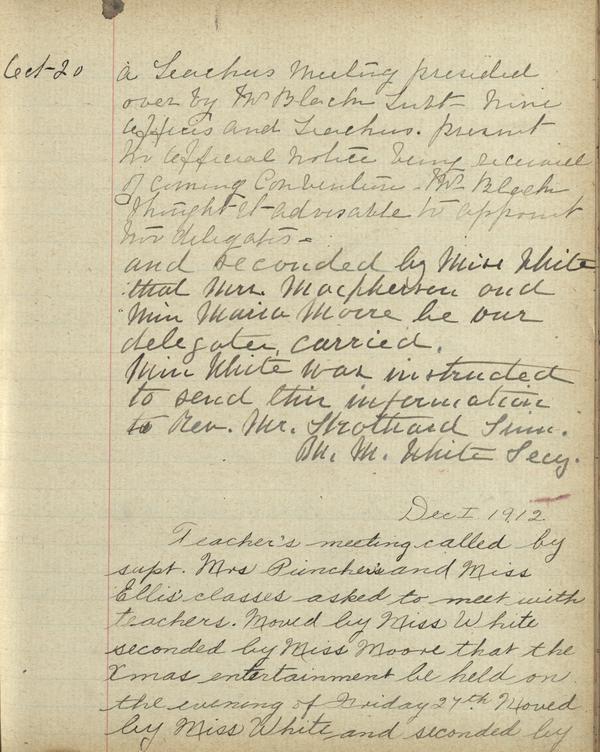 Oct-20
A Teachers Meeting presided
over by Mr Black Supt- Nine
officers and Teachers. present
No official notice being received
of coming Convention. Mr Black
thought it advisable to appoint
two delegates.
and seconded by Miss White
that Mrs. Macpherson and
Miss Maria Moore be our
delegates, carried.
Miss White was instructed
to send this information
to Rev. Mr. Strothard
M. White Secy.
Dec 1 1912
Teacher's meeting called by
supt. Mrs Puncher's and Miss
Ellis' classes asked to meet with
teachers. Moved by Miss White
seconded by Miss Moore that the
Xmas entertainment be held on
the evening of Friday 27th Moved
by Miss White and seconded by